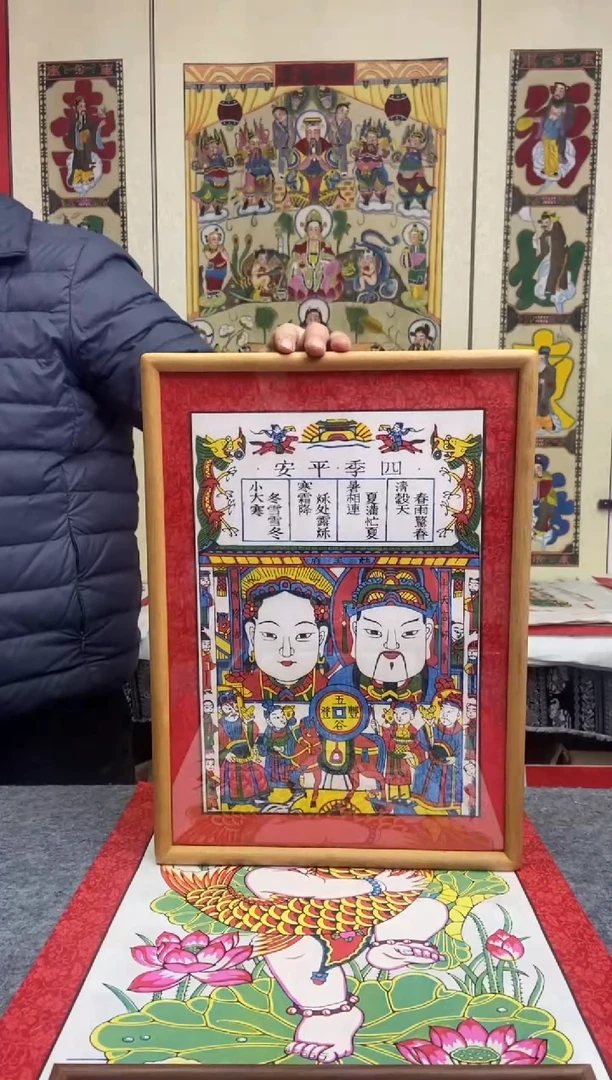 四季平安
春雨驚春
清穀天
夏滿忙夏
暑相連
秌处露秌
寒霜降
冬雪雪冬
小大寒
五谷豐登